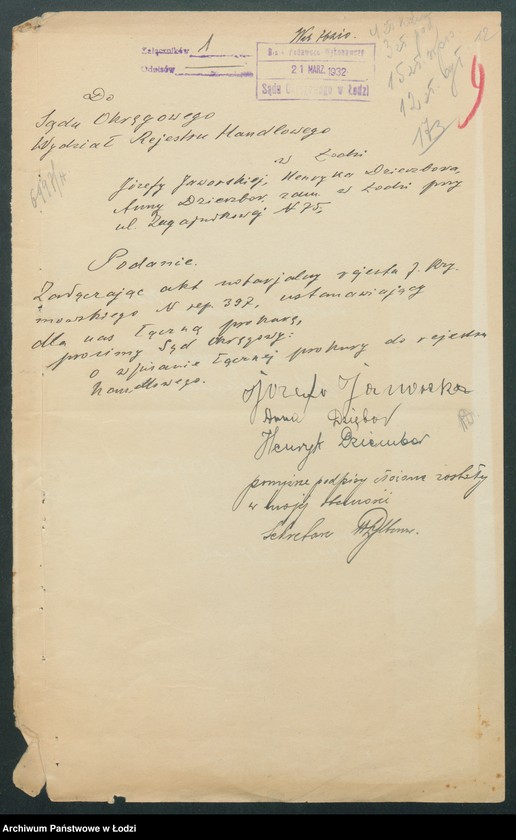 Załączników 1
Odpisów
21 MARZ. 1932
Sądu Okręgowego w Łodzi
12
173
9
Do
Sądu Okręgowego
Wydział Rejestru Handlowego
w Łodzi
Józefy Jaworskiej, Henryka Dzieombora,
Anny Dzieombor, zam. w Łodzi przy
ul. Zagajnikowej N 75,
Podanie.
Załączając akt notarjalny rejenta J. Kry-
mowskiego N rep 397, ustanawiający
dla nas łączną prokurę,
prosimy Sąd Okręgowy:
o wpisanie łącznej prokury do rejestru
handlowego.
Józefa Jaworska
Anna
Henryk
powyższe podpisy złożone zostały
w mojej obecności
Sekretarz
Archiwum Państwowe w Łodzi